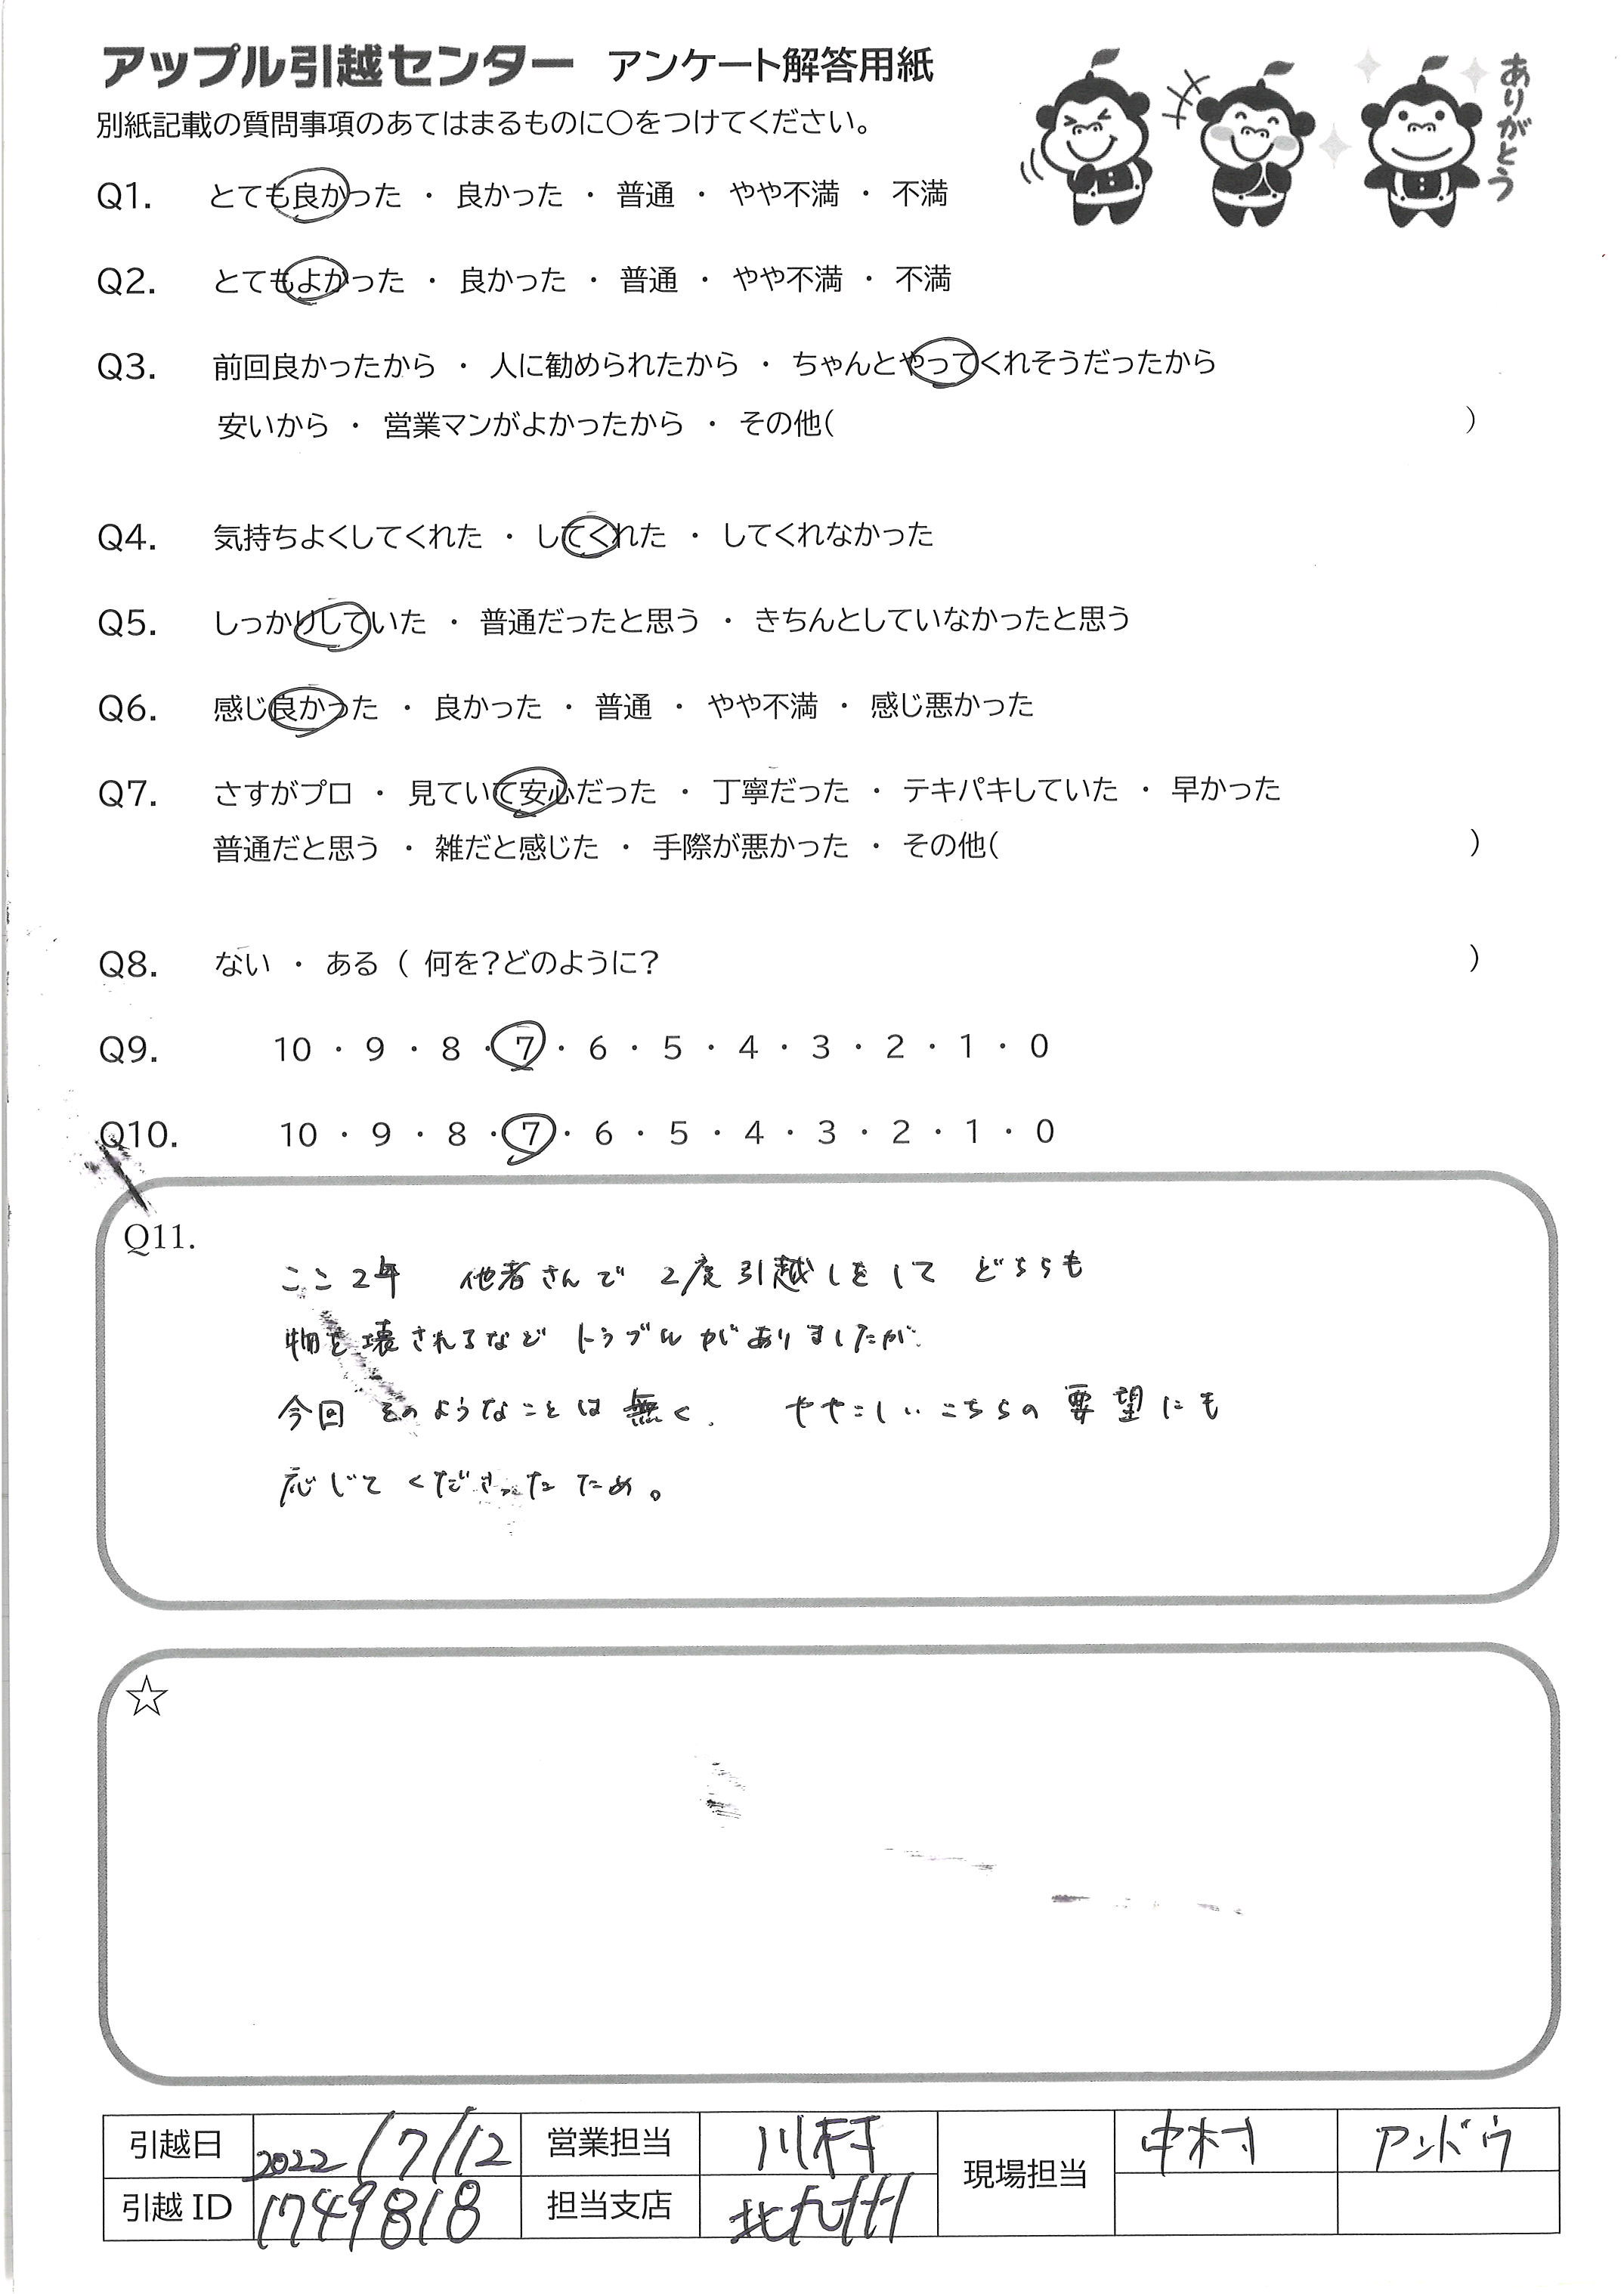 アップル引越センター アンケート解答用紙
ありがとう
別紙記載の質問事項のあてはまるものに〇をつけてください。
Q1. とても良かった ・ 良かった ・ 普通 ・ やや不満 ・ 不満
Q2. とてもよかった ・ 良かった ・ 普通 ・ やや不満 ・ 不満
Q3. 前回良かったから ・ 人に勧められたから ・ ちゃんとやってくれそうだったから
安いから ・ 営業マンがよかったから ・ その他( )
Q4. 気持ちよくしてくれた ・ してくれた ・ してくれなかった
Q5. しっかりしていた ・ 普通だったと思う ・ きちんとしていなかったと思う
Q6. 感じ良かった ・ 良かった ・ 普通 ・ やや不満 ・ 感じ悪かった
Q7. さすがプロ ・ 見ていて安心だった ・ 丁寧だった ・ テキパキしていた ・ 早かった
普通だと思う ・ 雑だと感じた ・ 手際が悪かった ・ その他( )
Q8. ない ・ ある ( 何を?どのように? )
Q9. 10 ・ 9 ・ 8 ・ 7 ・ 6 ・ 5 ・ 4 ・ 3 ・ 2 ・ 1 ・ 0
Q10. 10 ・ 9 ・ 8 ・ 7 ・ 6 ・ 5 ・ 4 ・ 3 ・ 2 ・ 1 ・ 0
Q11.
ここ2年 他者さんで 2度引越しをして どちらも
物を壊されるなど トラブルがありましたが、
今回 そのようなことは無く、 ややこしいこちらの要望にも
応じてくださったため。
☆
引越日 2022/7/12 営業担当 川村 現場担当 中村 アンドウ
引越ID 1749818 担当支店 北九州